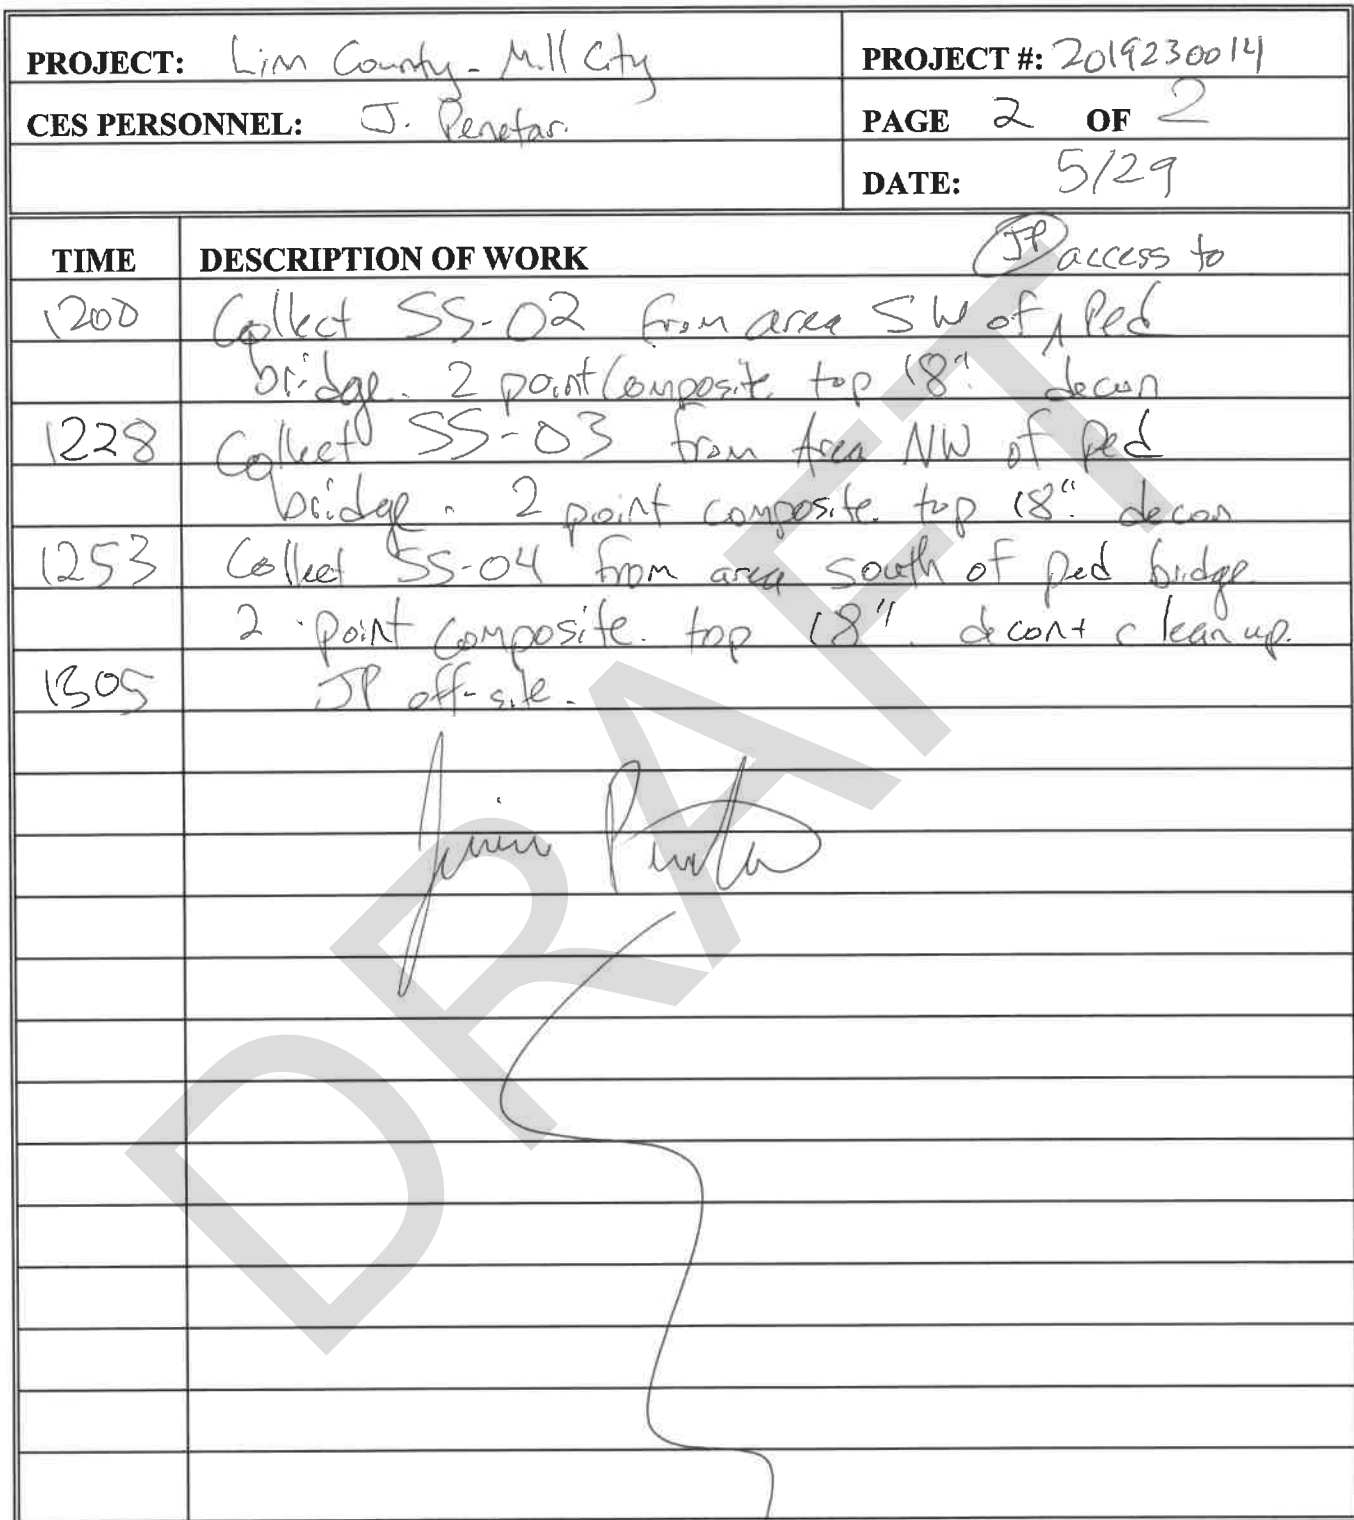 PROJECT: Linn County - Mill City
PROJECT #: 2019230014
CES PERSONNEL: J. Penetar.
PAGE 2 OF 2
DATE: 5/29
TIME DESCRIPTION OF WORK
JP access to
1200 Collect SS-02 from area SW of ^ Ped
bridge. 2 point Composite. top 18". decon
1228 Collect SS-03 from Area NW of ped
bridge. 2 point composite. top 18". decon
1253 Collect SS-04 from area south of ped bridge
2 point composite. top 18". decon + cleanup.
1305 JP off-site.
DRAFT